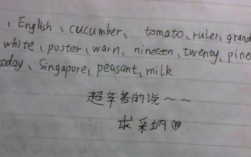 、English、cucumber、 tomato、ruler、grand
white、poster、warn、nineteen、twenty、pine
oday、Singapore、peasant、milk
超辛苦的说~~
求采纳♡